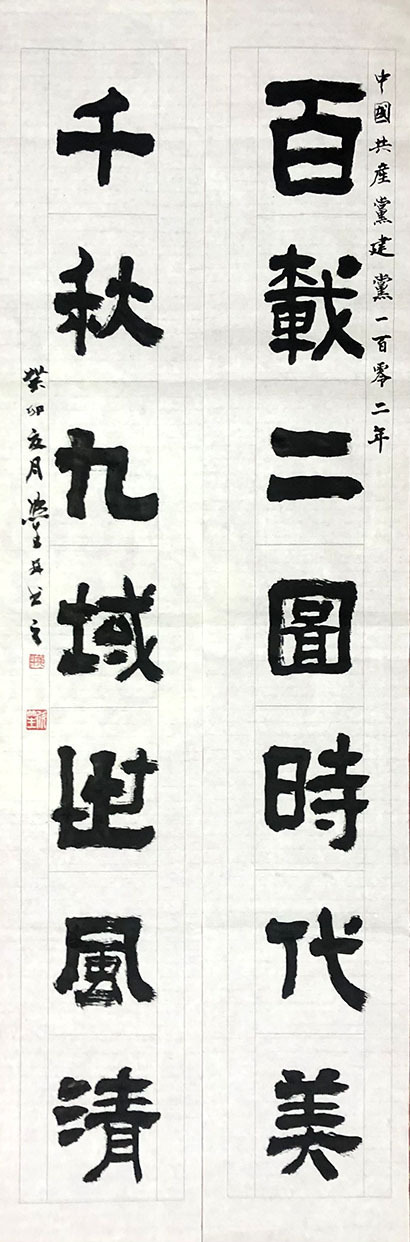 中國共產黨建黨一百零二年
百載二圖時代美
千秋九域世風清
癸卯夏月